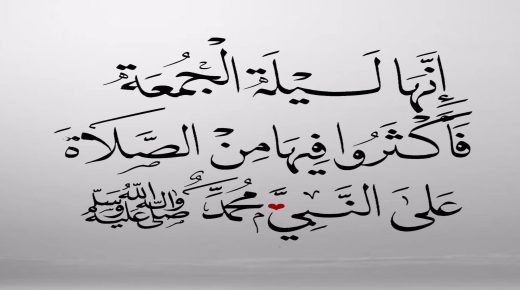 إِنَّهَا لَيْلَةَ الْجُمُعَةِ
فَأَكْثَرُوا فِيهَا مِنْ الصَّلَاةَ
عَلىَ النَّبِيِّ مُحَمَّدٍ صلى الله عليه وآله وسلم